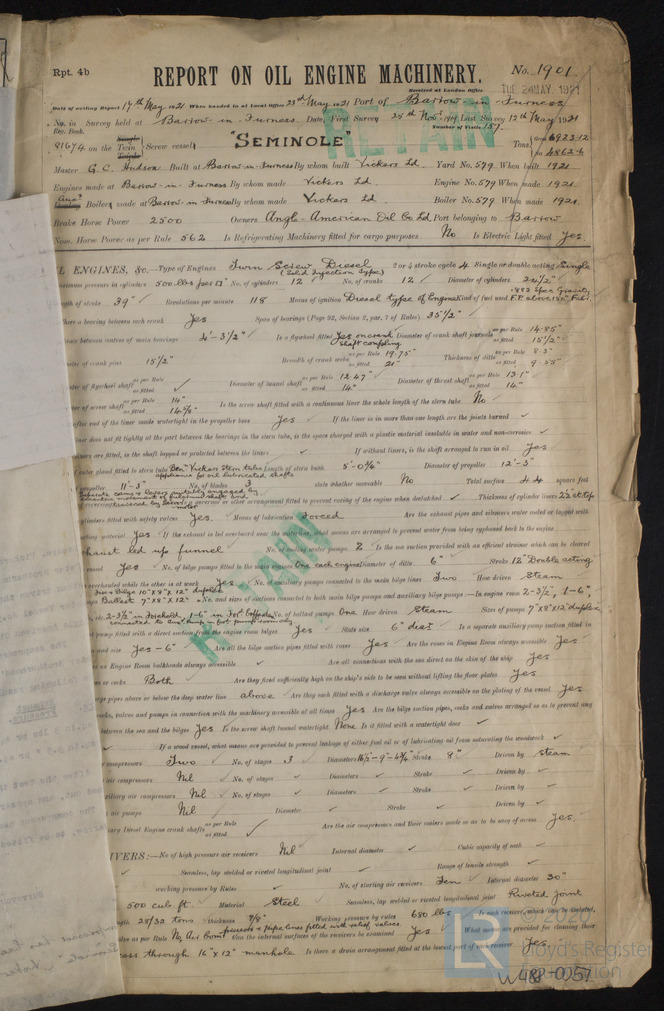 Rpt. 4b
REPORT ON OIL ENGINE MACHINERY.
No. 1901
Received at London Office
TUE 24 MAY. 1921
Date of writing Report 17th May 1921 When handed in at Local Office 23rd May 1921 Port of Barrow-in-Furness
No. in Survey held at Barrow-in-Furness Date, First Survey 25th Nov. Last Survey 12th May 1921
Reg. Book.
Number of Visits 157.
81674 on the Twin Screw vessel "SEMINOLE" Tons Gross 6923.12
Net 4262.6
RETAIN
Master G. C. Hudson Built at Barrow-in-Furness By whom built Vickers Ld. Yard No. 579 When built 1921
Engines made at Barrow-in-Furness By whom made Vickers Ld. Engine No. 579 When made 1921
Boilers made at Barrow-in-Furness By whom made Vickers Ld Boiler No. 579 When made 1921.
Brake Horse Power 2500 Owners Anglo-American Oil Co Ld Port belonging to Barrow
Nom. Horse Power as per Rule 562 Is Refrigerating Machinery fitted for cargo purposes No Is Electric Light fitted Yes.
L ENGINES, &c.—Type of Engines Twin Screw Diesel 2 or 4 stroke cycle 4 Single or double acting Single
(Solid Injection Type)
ximum pressure in cylinders 500 lbs per □" No. of cylinders 12 No. of cranks 12 ✓ Diameter of cylinders 24½"
ngth of stroke 39" ✓ Revolutions per minute 118 Means of ignition Diesel type of Engine Kind of fuel used
there a bearing between each crank Yes Span of bearings (Page 92, Section 2, par. 7 of Rules) 35½" ✓
ance between centres of main bearings 4'-3½" ✓ Is a flywheel fitted Yes on crank shaft coupling Diameter of crank shaft journals as per Rule 14.85"
as fitted 15½"
meter of crank pins 15½" Breadth of crank webs as per Rule 19.75" Thickness of ditto as per Rule 8.5"
as fitted 21" as fitted 9.55"
er of flywheel shaft as per Rule ✓ Diameter of tunnel shaft as per Rule 12.47" Diameter of thrust shaft as per Rule 13.1"
as fitted as fitted 14" as fitted 14"
er of screw shaft as per Rule 14" Is the screw shaft fitted with a continuous liner the whole length of the stern tube No ✓
as fitted 14⅝"
after end of the liner made watertight in the propeller boss Yes ✓ If the liner is in more than one length are the joints burned ✓
liner does not fit tightly at the part between the bearings in the stern tube, is the space charged with a plastic material insoluble in water and non-corrosive ✓
iners are fitted, is the shaft lapped or protected between the liners ✓ If without liners, is the shaft arranged to run in oil Yes
outer gland fitted to stern tube Length of stern bush 5'-0¾" Diameter of propeller 12'-3"
appliance for oil lubricated shafts
propeller 11'-3" No. of blades 3 state whether moveable No Total surface 44 square feet
governor or other arrangement fitted to prevent racing of the engine when declutched ✓ Thickness of cylinder liners
cylinders fitted with safety valves Yes. Means of lubrication Forced Are the exhaust pipes and silencers water cooled or lagged with
cting material Yes If the exhaust is led overboard near the waterline, what means are arranged to prevent water being syphoned back to the engine
xhaust led up funnel No. of cooling water pumps 2 Is the sea suction provided with an efficient strainer which can be cleared
vessel Yes ✓ No. of bilge pumps fitted to the main engines One each engine Diameter of ditto 6" Stroke 12" Double acting
overhauled while the other is at work Yes No. of auxiliary pumps connected to the main bilge lines Two How driven Steam
Fire & Bilge 10"x8"x12" duplex
Ballast 7"x8"x12" No. and sizes of suctions connected to both main bilge pumps and auxiliary bilge pumps:—In engine room 2-3½", 1-6",
2-3½" in Forehold, 1-6" in For'd Cofferdam No. of ballast pumps One How driven Steam Sizes of pumps 7"x8"x12" duplex
RETAIN
t pump fitted with a direct suction from the engine room bilges Yes ✓ State size 6" dia. ✓ Is a separate auxiliary pump suction fitted in
and size Yes - 6" Are all the bilge suction pipes fitted with roses Yes ✓ Are the roses in Engine Room always accessible Yes
on Engine Room bulkheads always accessible ✓ Are all connections with the sea direct on the skin of the ship Yes
es or cocks Both Are they fixed sufficiently high on the ship's side to be seen without lifting the floor plates Yes
arge pipes above or below the deep water line above Are they each fitted with a discharge valve always accessible on the plating of the vessel Yes
cocks, valves and pumps in connection with the machinery accessible at all times Yes Are the bilge suction pipes, cocks and valves arranged so as to prevent any
between the sea and the bilges Yes Is the screw shaft tunnel watertight None Is it fitted with a watertight door ✓
If a wood vessel, what means are provided to prevent leakage of either fuel oil or of lubricating oil from saturating the woodwork ✓
compressors Two No. of stages ✓ 3 Diameters 16½"-9"-4¾" Stroke 8" Driven by Steam
air compressors Nil No. of stages ✓ Diameters ✓ Stroke ✓ Driven by ✓
xiliary air compressors Nil No. of stages ✓ Diameters ✓ Stroke ✓ Driven by ✓
air pumps Nil Diameter ✓ Stroke ✓ Driven by ✓
iary Diesel Engine crank shafts as per Rule Are the air compressors and their coolers made so as to be easy of access Yes.
as fitted ✓
IVERS:—No. of high pressure air receivers Nil Internal diameter ✓ Cubic capacity of each ✓
Seamless, lap welded or riveted longitudinal joint ✓ Range of tensile strength ✓
working pressure by Rules ✓ No. of starting air receivers Ten Internal diameter 30"
500 cub. ft. ✓ Material Steel Seamless, lap welded or riveted longitudinal joint Riveted joint
ngth 28/32 tons thickness 7/8" Working pressure by rules 680 lbs Is each receiver, which can be isolated,
alve as per Rule Are the internal surfaces of the receivers be examined Yes What means are provided for cleaning their
cess through 16"x12" manhole Is there a drain arrangement fitted at the lowest part of each receiver Yes.
© 2020
Lloyd's Register
Foundation
W488-0057